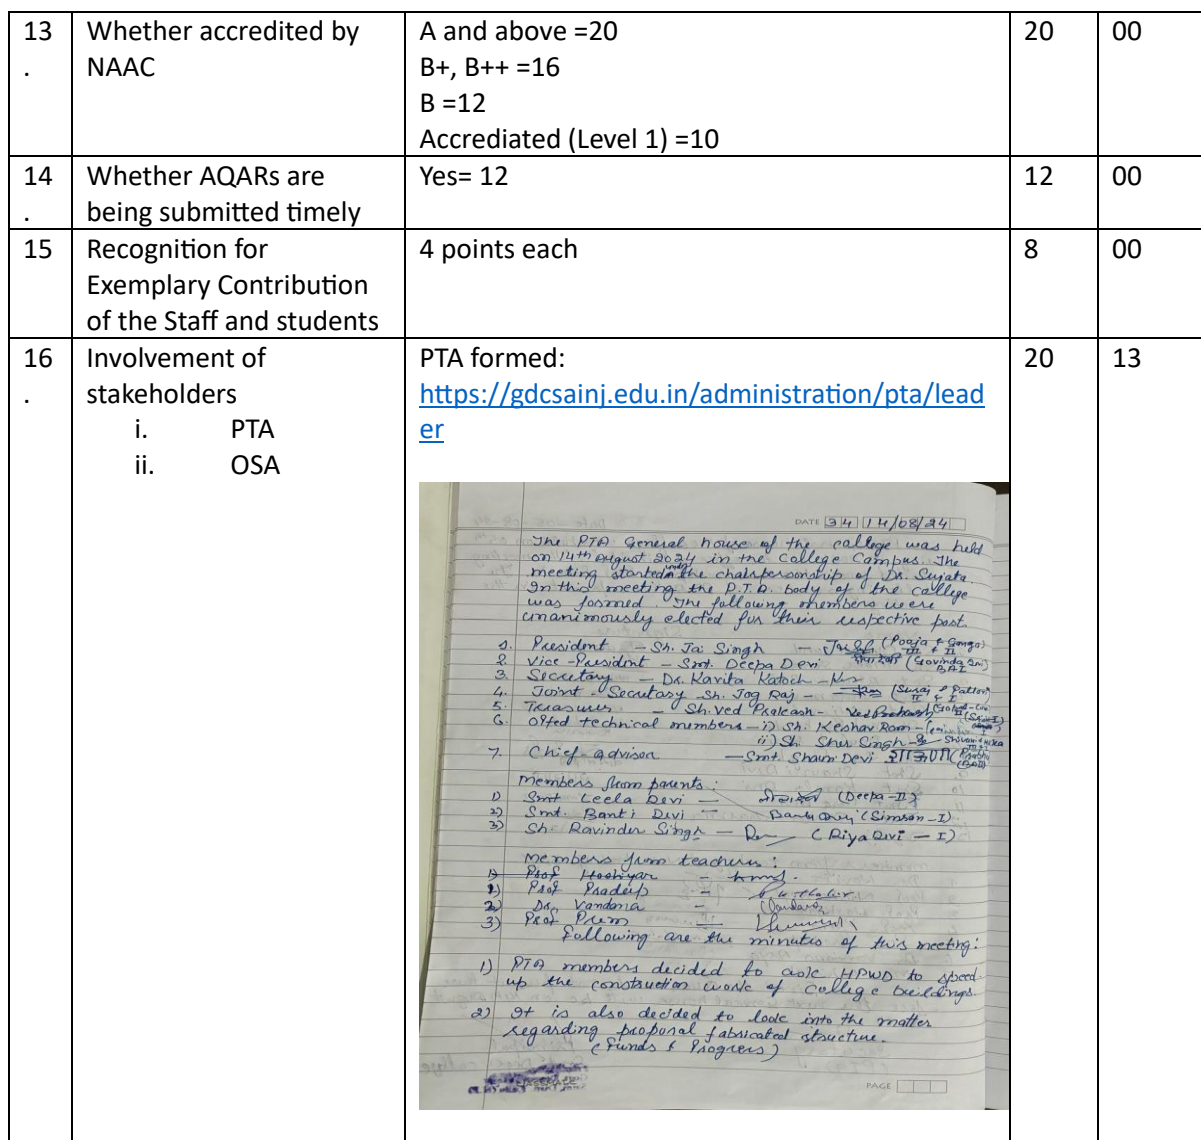 13 Whether accredited by A and above =20 20 00
. NAAC B+, B++ =16
B =12
Accrediated (Level 1) =10
14 Whether AQARs are Yes= 12 12 00
. being submitted timely
15 Recognition for 4 points each 8 00
Exemplary Contribution
of the Staff and students
16 Involvement of PTA formed: 20 13
. stakeholders https://gdcsainj.edu.in/administration/pta/lead
i. PTA er
ii. OSA
DATE 34 14/08/24
The PTA General house of the college was held
on 14th August 2024 in the College Campus. The
meeting started under the chairpersonship of Dr. Sujata.
In this meeting the P.T.A. body of the college
was formed. The following members were
unanimously elected for their respective post.
1. President - Sh. Jai Singh - (Pooja & Ganga)
2. Vice-President - Smt. Deepa Devi
3. Secretary - Dr. Kavita Katoch
4. Joint-Secretary Sh. Jog Raj -
5. Treasurer - Sh. Ved Prakash - Ved Prakash
6. Opted technical members - i) Sh. Keshav Ram -
ii) Sh. Sher Singh -
7. Chief-advisor - Smt. Shauri Devi
Members from parents:
1) Smt Leela Devi - (Deepa-II)
2) Smt. Banti Devi - (Simran-I)
3) Sh. Ravinder Singh - (Riya Devi - I)
Members from teachers:
1) Prof Hoshiyar -
1) Prof Pradeep -
2) Dr. Vandana -
3) Prof Prem -
Following are the minutes of this meeting:
1) PTA members decided to ask HPWD to speed
up the construction work of college buildings.
2) It is also decided to look into the matter
regarding proposal fabricated structure.
(Funds & Progress)
CLASSMATE
PAGE